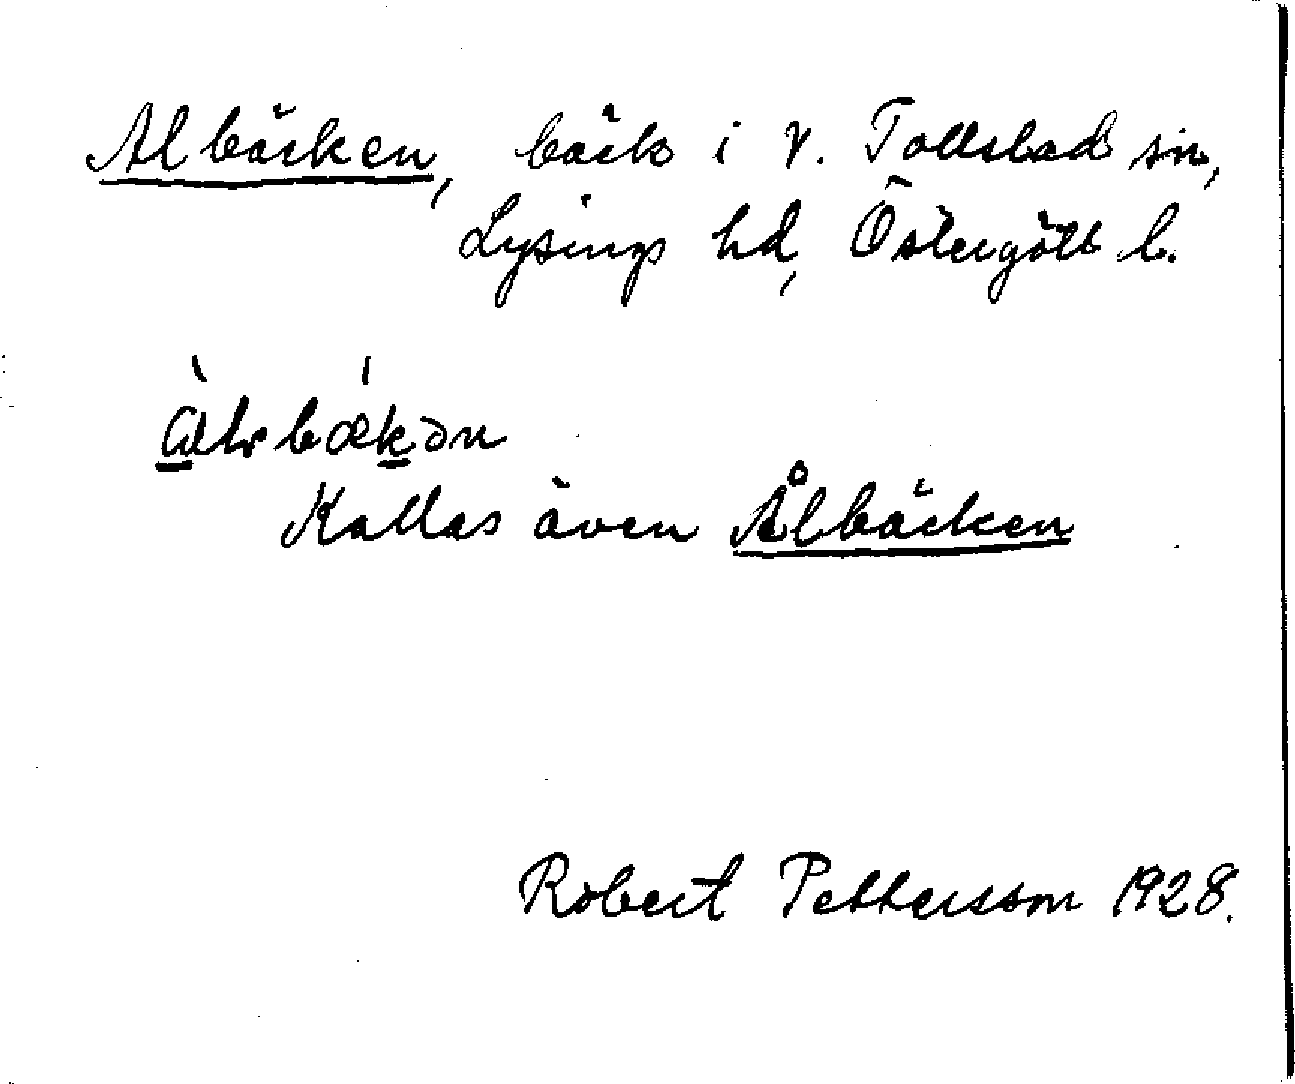 Albäcken, bäck i V. Tollstad sn,
Lysings hd, Östergötl l.
Kallas även Ålbäcken
Robert Pettersson 1928.